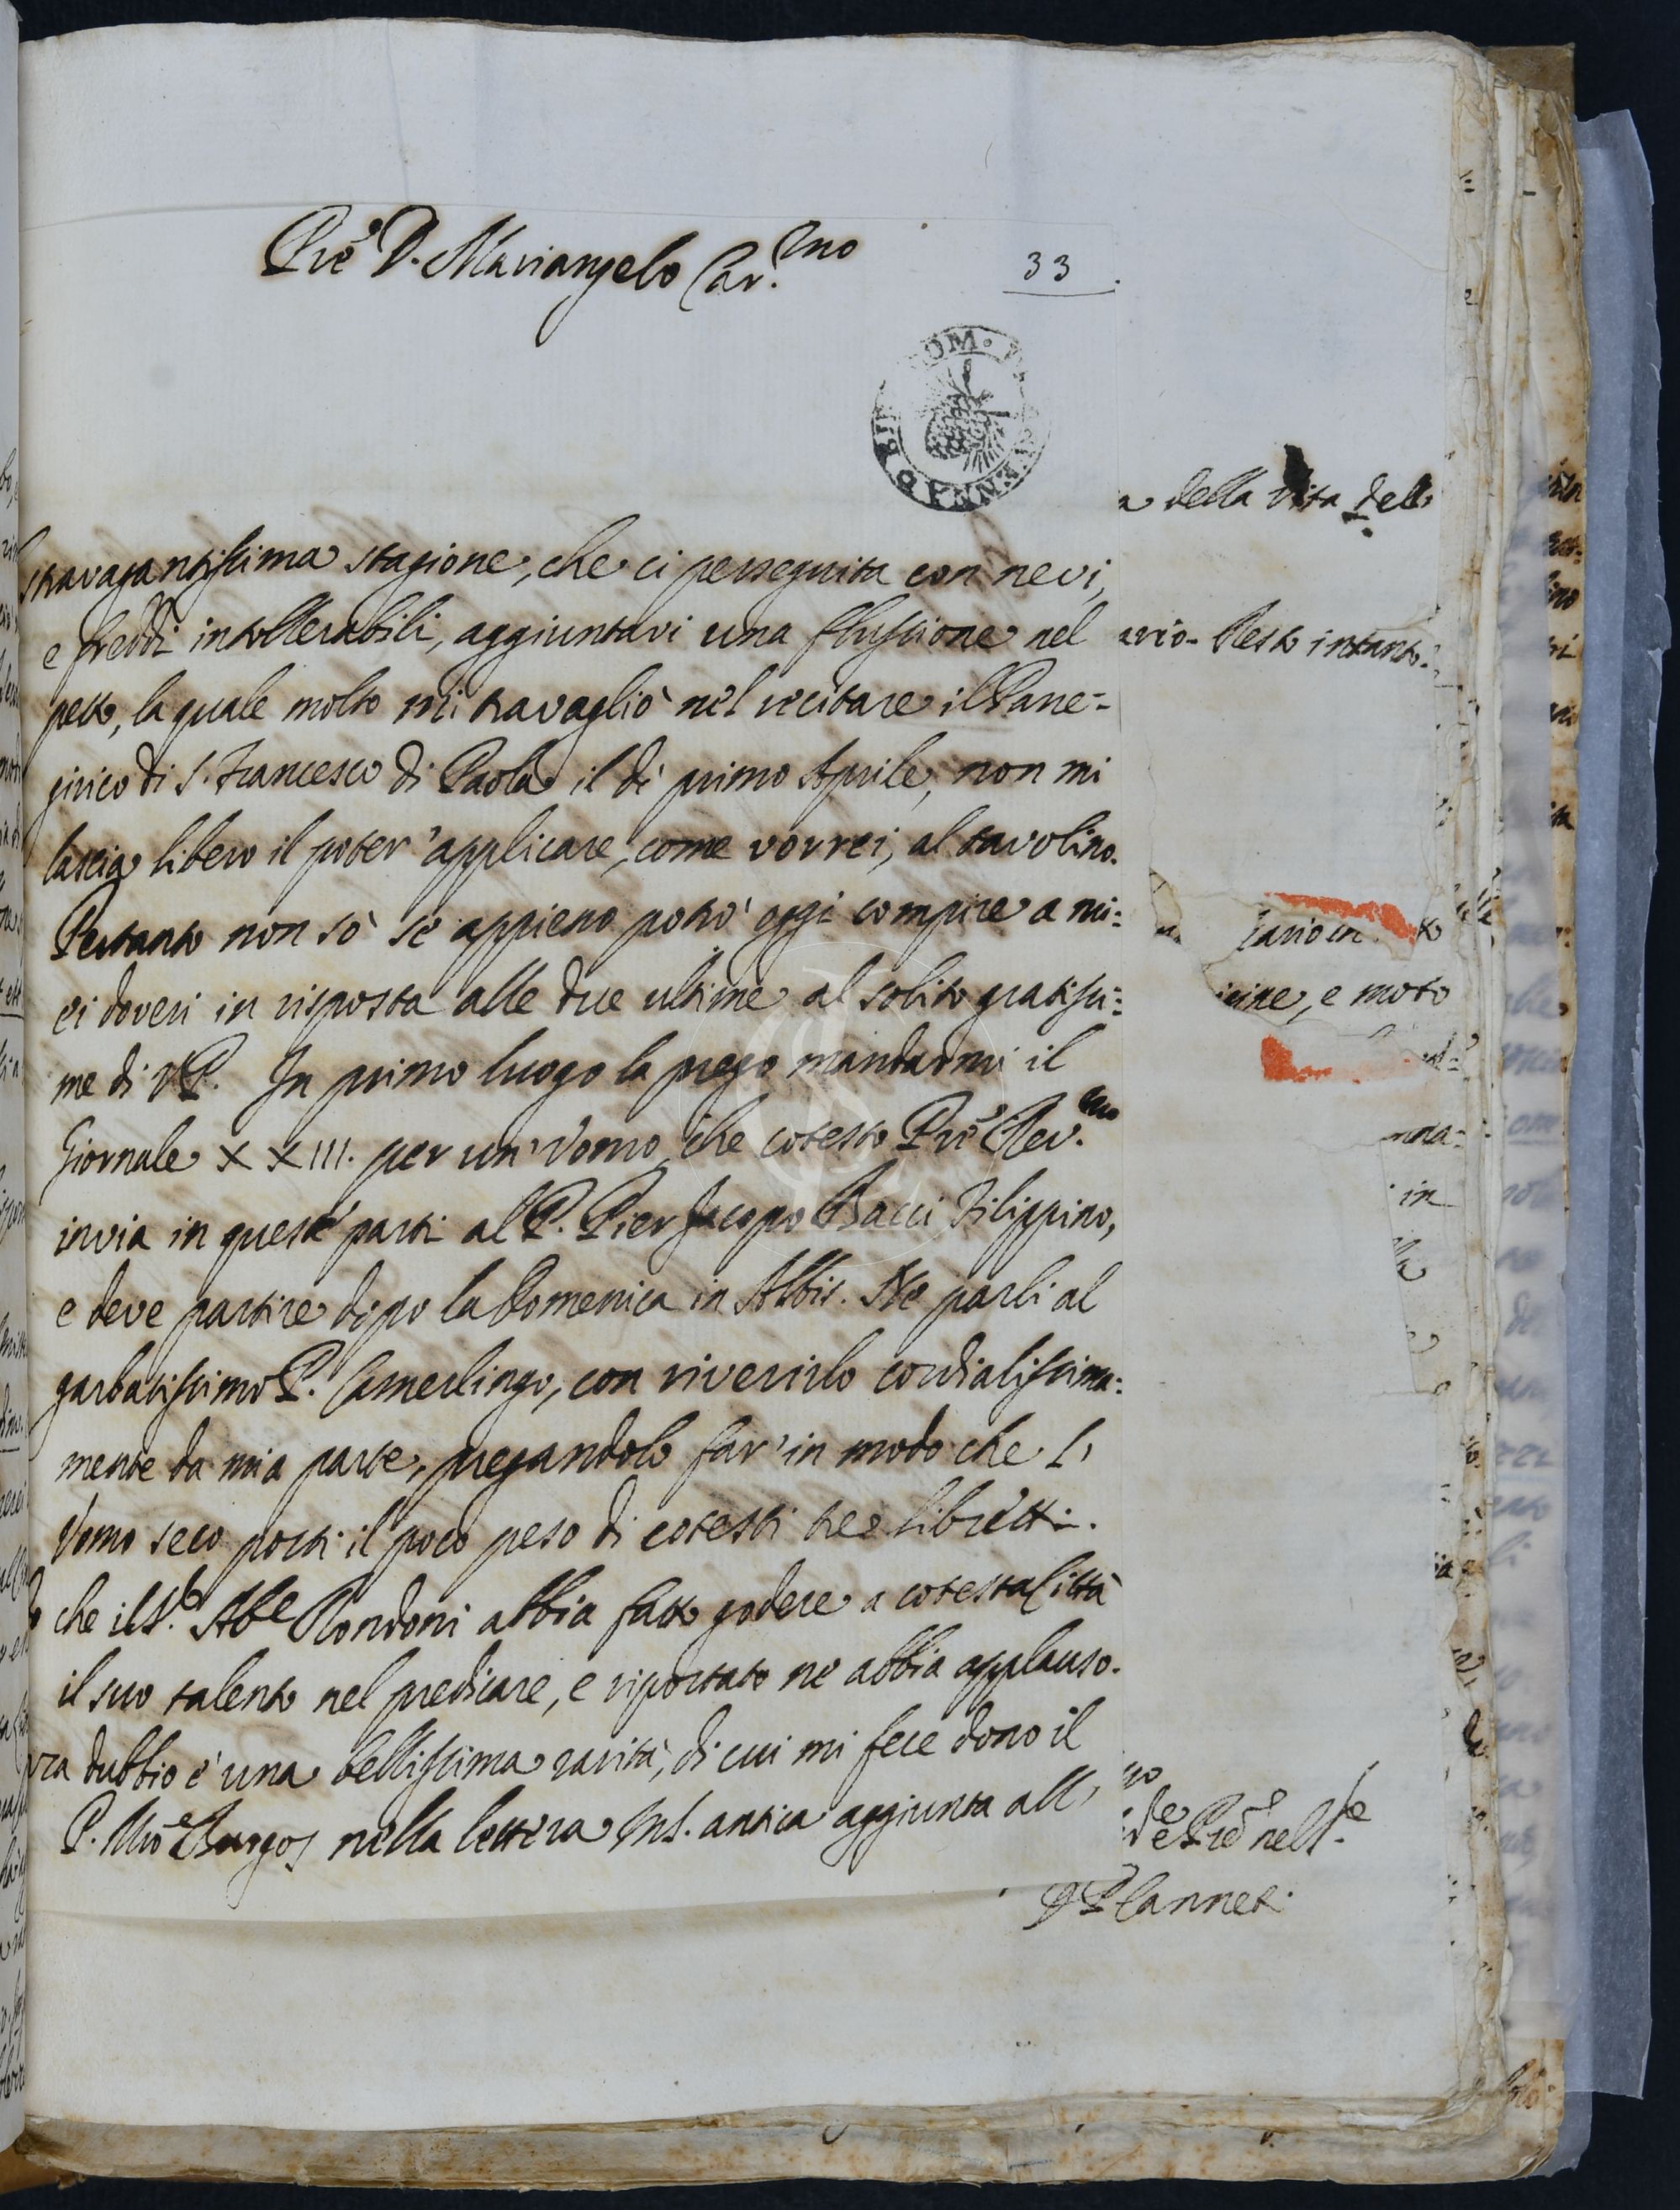 Prē D. Mariangelo Car.mo
33
stravagantissima stagione, che ci perseguita con nevi,
e freddi intollerabili, aggiuntavi una flussione nel
petto, la quale molto mi travagliò nel recitare il Pane-
girico di S. Francesco di Paola il dì primo Aprile, non mi
lascia libero il poter' applicare, come vorrei, al tavolino.
Pertanto non sò se appieno potrò oggi compire a mi:
ei doveri in risposta alle due ultime al solito gratissi:
me di VP. In primo luogo la prego mandarmi il
Giornale XXIII. per un' Vomo, che cotesto Prē Rev.mo
invia in queste parti al P. Pier Jacopo Bacci Filippino,
e deve partire dopo la Domenica in Albis. Ne parli al
garbatissimo P. Camerlingo, con riverirlo cordialissima:
mente da mia parte, pregandolo far' in modo che l'
Vomo seco porti il poco peso di cotesti tre libretti.
che il S.r Abe Rondoni abbia fatto godere a cotesta Città
il suo talento nel predicare, e riportato ne abbia applauso.
dubbio è una bellissima rarità, di cui mi fece dono il
P. Mrō Burgos nella lettera MS. antica aggiunta all'
a della vita dell'
ario. Resto intanto
e moto
in
Prē nel S.re
Canneti